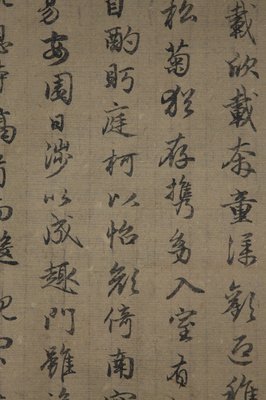 載欣載奔童僕歡迎稚
松菊猶存攜幼入室有
自酌眄庭柯以怡顏倚南窗
易安園日涉以成趣門雖設
矯首而遐觀